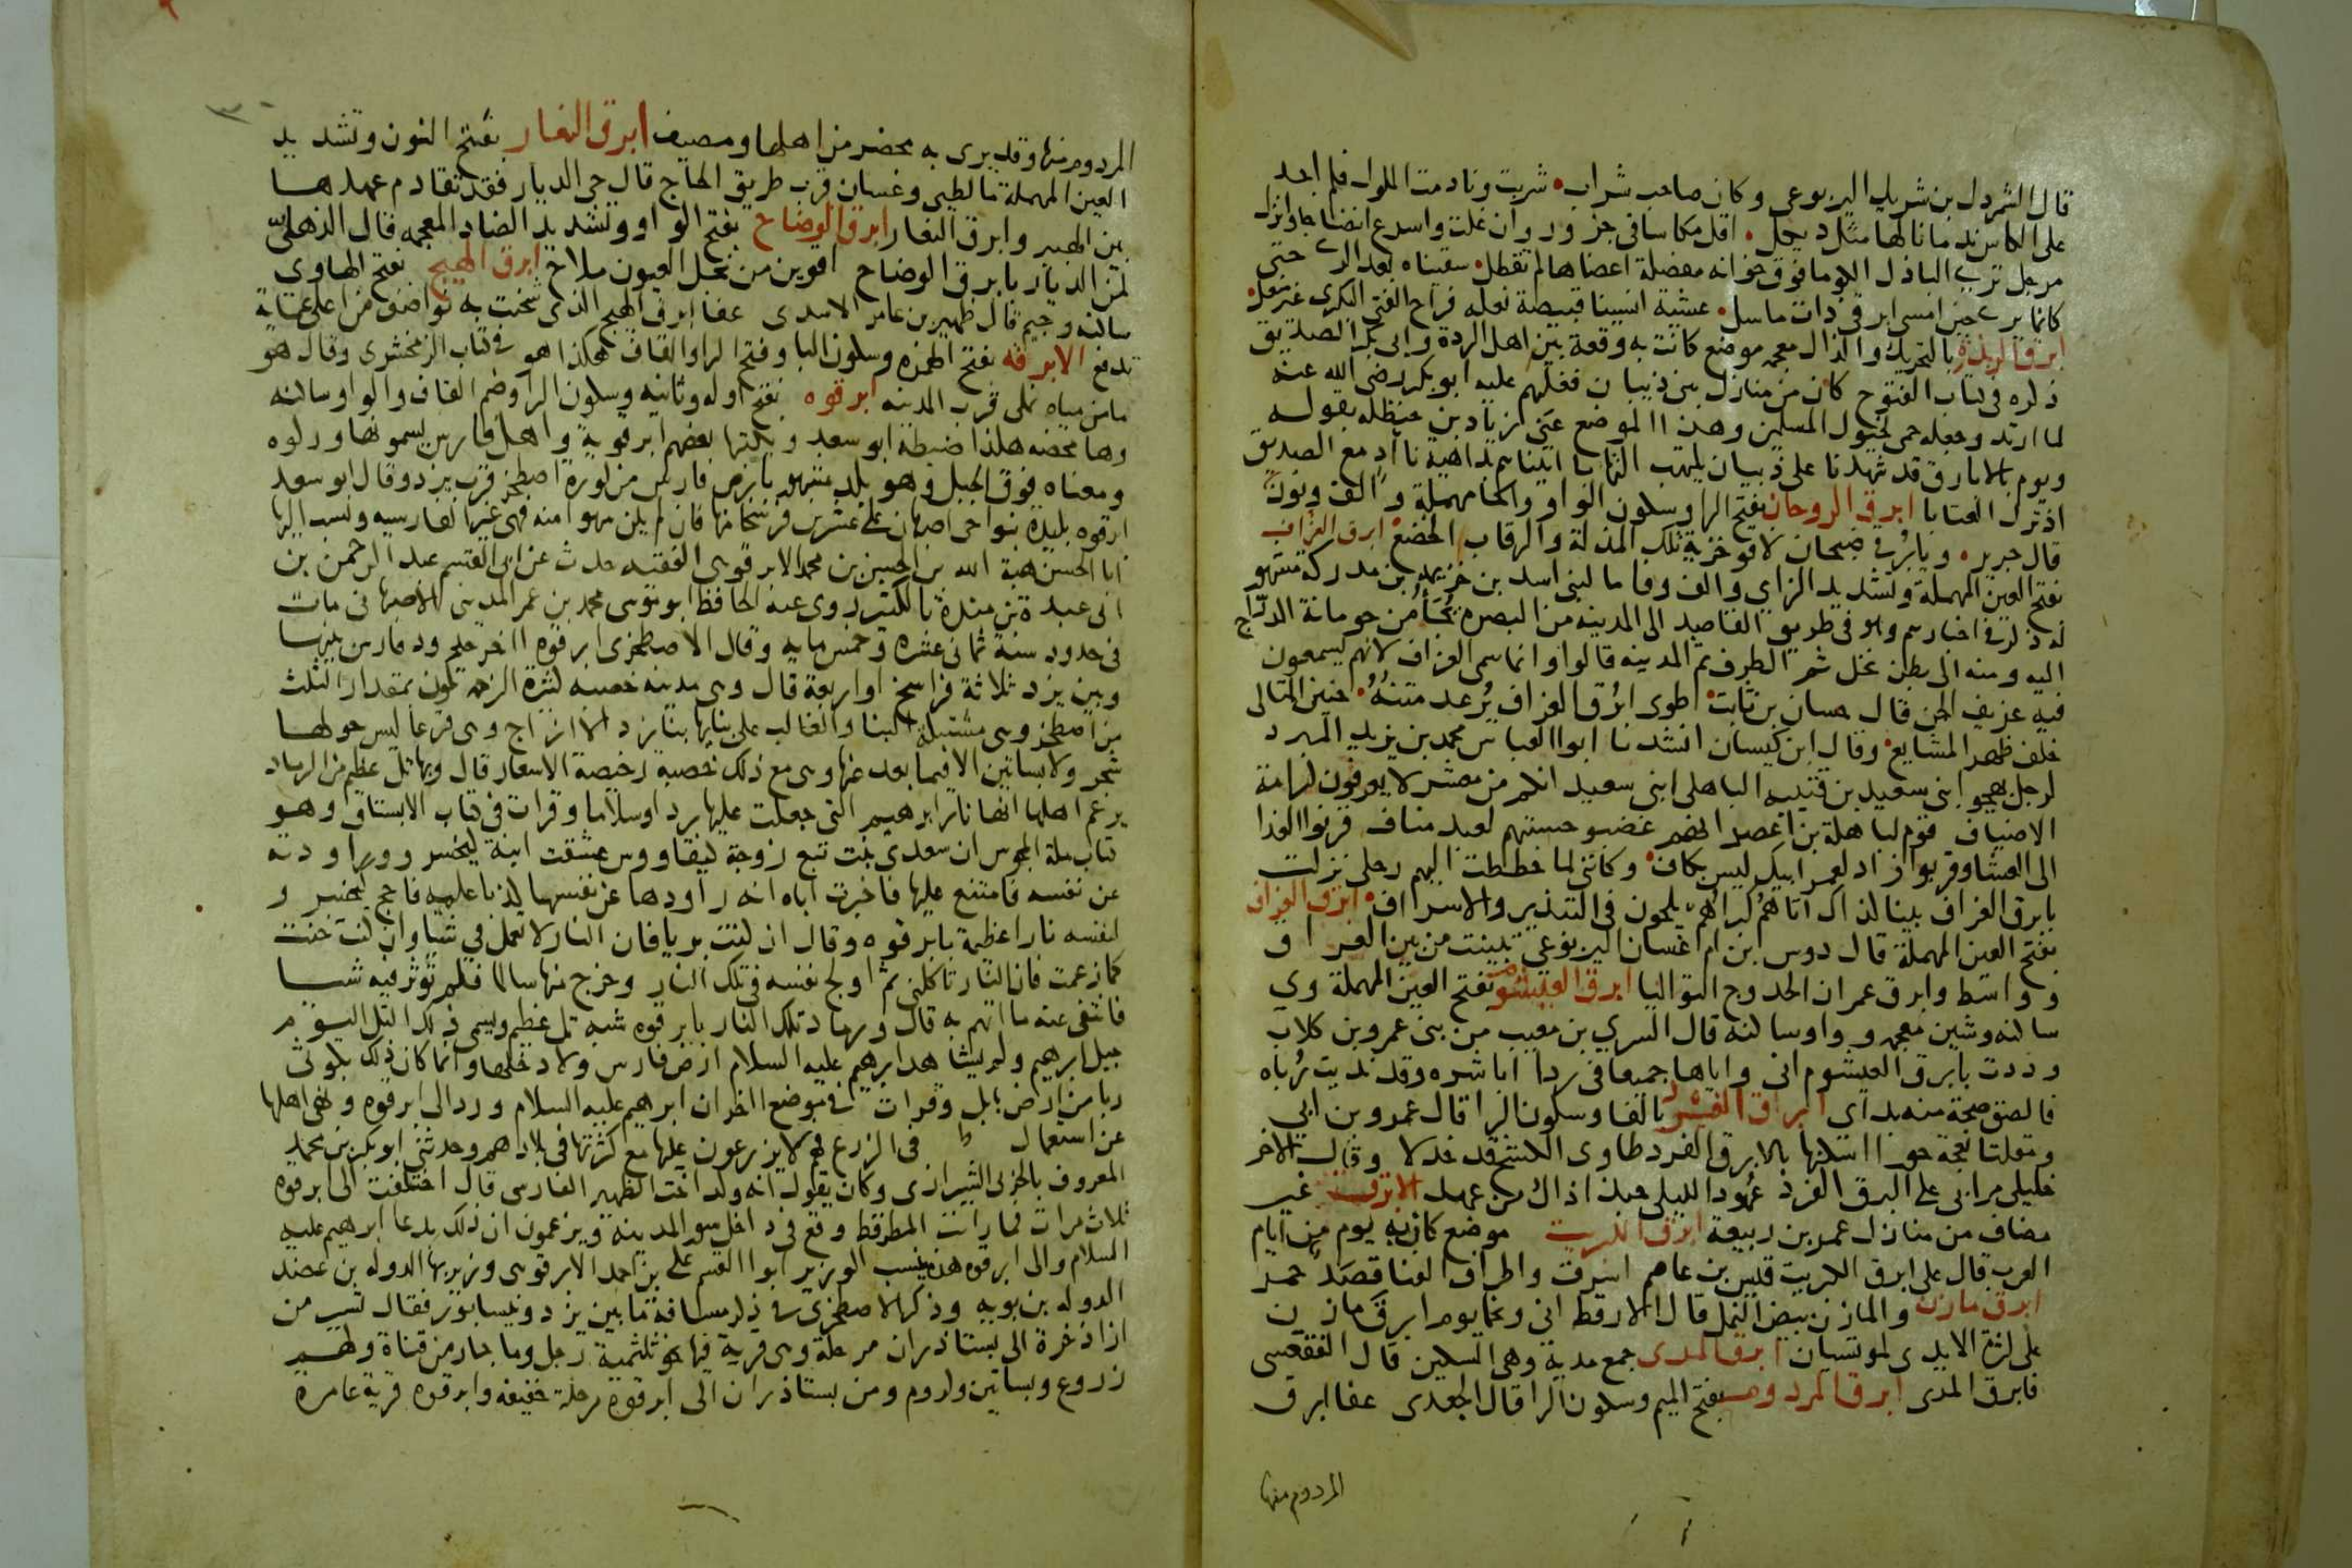 قال الشمردل بن شريك اليربوعي وكان صاحب شراب شربت ونادمت الملوك فلم اجد
على الكاس ندمانا لها مثل ديكل اقل مكاسا في جزور وان غلت واسرع انضاجا وانزال
مرجل ترى البازل الكوما فوق خوانه مفصلة اعضاها لم تفصل سقيناه بعد الري حتى
كانما يرى حين امسى ابرقي ذات ماسل عشية انسينا قبيصة نعله فراح الفتى البكري غير منعل
ابرق الربذة بالتحريك والذال معجمه موضع كانت به وقعة بين اهل الردة وابي بكر الصديق
ذكره في كتاب الفتوح كان من منازل بني ذبيان فغلبهم عليه ابو بكر رضي الله عنه
لما ارتدو وجعله حمى لخيول المسلمين وهذا الموضع عنى زياد بن حنظله بقوله
ويوم بالابارق قد شهدنا على ذبيان يلتهب التهابا اتيناهم بداهية ناآد مع الصديق
اذ ترك العتابا ابرق الروحان بفتح الرا وسكون الواو والحا مهملة والف ونون
قال جرير
بفتح العين المهملة وتشديد الزاي والف وفا ما لبني اسد بن خزيمه بن مدركة مشهور
له ذكر في اخبارهم وهو في طريق القاصد الى المدينه من البصره يجا من حومانة الدراج
اليه ومنه الى بطن نخل ثم الطرف ثم المدينه قالوا وانما سمي العزاف لانهم يسمعون
فيه عزيف الجن قال حسان بن ثابت اطوى ابرق العزاف يرعد متنه حنين المتالى
خلف ظهر المشايع وقال ابن كيسان انشدنا ابو العباس محمد بن يزيد المبرد
لرجل يهجو ابني سعيد بن قتيبه الباهلي ابني سعيد انكم من معشر لا يعرفون كرامة
الاضياف قوم لباهلة بن اعصر انهم غضبو حسبتهم لعبد مناف قربوا الغدا
الى العشا وقربوا زاد لعمر ابيك ليس بكاف وكانني لما حططت اليهم رحلى نزلت
بابرق العزاف بينا كذاك اتاهم كبراهم يلحون في التبذير والاسراف
بفتح العين المهملة قال دوس ابن ام غسان اليربوعي تبينت من بين العراق
وواسط وابرق عمران الحدوج التواليا ابرق العيشوم بفتح العين المهملة وي
ساكنه وشين معجمه وواو ساكنه قال السري بن معتب من بني عمرو بن كلاب
وددت بابرق العيشوم اني واياها جميعا في ردا اباشره وقد نديت رباه
فالصق صحة منه بداى ابرق الفرد بالفا وسكون الرا قال عمرو بن ابي
خليلى مرا بي على البرق الفرد عهودا لليلى حبذا ذاك من عهد الابرق غير
مضاف من منازل عمر بن ربيعة ابرق الكبريت موضع كان به يوم من ايام
العرب قال على ابرق الكبريت قيس بن عاصم اسرت واطراف القنا قصد حمر
ابرق مازن والمازن بيض النمل قال الارقط اني ونجما يوم ابرق مازن
على كثرة الايدي لموتسيان ابرق المدى جمع مدية وهي السكين قال الفقعسي
فابرق المدى ابرق المردوم بفتح الميم وسكون الرا قال الجعدي عفا ابرق
المردوم منها
المردوم منها وقد يرى به محضر من اهلها ومصيف ابرق النعار بفتح النون وتشديد
العين المهملة ما لطيي وغسان قرب طريق الحاج قال حي الديار فقد تقادم عهدها
بين الهبير وابرق النعار ابرق الوضاح بفتح الواو وتشديد الضاد المعجمه قال الذهلي
لمن الديار بابرق الوضاح اقوين من نجل العيون ملاح ابرق الهيج بفتح الها وي
ساكنه وجيم قال ظهير بن عامر الاسدي عفا ابرق الهيج الذي شحنت به نواصف من اعلى عماية
تدفع الابرقه بفتح الهمزه وسكون البا وفتح الرا والقاف هكذا هو في كتاب الزمخشري وقال هو
ما من مياه نملى قرب المدينه ابرقوه بفتح اوله وثانيه وسكون الرا وضم القاف والواو ساكنه
وها محضه هكذا ضبطه ابو سعد ويكتبها بعضهم ابرقويه واهل فارس يسمونها وركوه
ومعناه فوق الجبل وهو بلد مشهور بارض فارس من كورة اصطخر قرب يزد وقال ابو سعد
ابرقوه بليدة بنواحي اصبهان على عشرين فرسخا منها فان لم يكن سهوا منه فهي غير الفارسيه ونسب اليها
ابا الحسن هبة الله بن الحسن بن محمد الابرقوهي الفقيه حدث عن ابي القسم عبد الرحمن بن
ابي عبدة بن مندة بالكثير روى عنه الحافظ ابو موسى محمد بن عمر المديني الاصبهاني مات
في حدود سنة ثماني عشره وخمس مايه وقال الاصطخري ابرقوه اخر حدود فارس بينها
وبين يزد ثلاثة فراسخ او اربعة قال وهي مدينه خصبه كثيرة الزحمه تكون بمقدار الثلث
من اصطخر وهي مشتبكة البنا والغالب على بنايها بنا يزد الازاج وهي قرعا ليس حولها
شجر ولا بساتين الا فيما بعد عنها وهي مع ذلك خصبه رخيصة الاسعار قال وبها تل عظيم من الرماد
يزعم اهلها انها نار ابراهيم التي جعلت عليه بردا وسلاما وقرات في كتاب الابستاق وهو
كتاب ملة المجوس ان سعدى بنت تبع زوجة كيقاووس عشقت ابنه كيخسرو وراودته
عن نفسه فامتنع عليها فاخبرت اباه انه راودها عن نفسها كذبا عليه فاجج كيخسرو
لنفسه نارا عظيمة بابرقوه وقال ان كنت بريا فان النار لا تعمل في شيا وان كنت خنت
كما زعمت فان النار تاكلني ثم اولج نفسه في تلك النار وخرج منها سالما فلم توثر فيه شيا
فانتفى عنه ما اتهم به قال ورماد تلك النار بابرقوه شبه تل عظيم ويسمى ذلك التل اليوم
جبل ابرهيم ولم يشاهد ابرهيم عليه السلام ارض فارس ولا دخلها وانما كان ذلك بكوثى
ربا من ارض بابل وقرات في موضع اخر ان ابرهيم عليه السلام ورد الى ابرقوه ونهى اهلها
عن استعمال في الزرع فهم لا يزرعون عليها مع كثرتها في بلادهم وحدثني ابو بكر بن محمد
المعروف بالحربي الشيرازي وكان يقول انه ولد اخت الظهير الفارسي قال اختلفت الى ابرقوه
ثلاث مرات فما رايت المطر قط وقع في داخل سور المدينة ويزعمون ان ذلك بدعا ابرهيم عليه
السلام والى ابرقوه هذه ينسب الوزير ابو القسم علي بن احمد الابرقوهي وزير بها الدوله بن عضد
الدوله بن بويه وذكر الاصطخري في ذكر مسافة ما بين يزد ونيسابور فقال تسير من
ازاذخرة الى بستاذران مرحلة وهي قرية فيها نحو ثلثمية رجل وما جار من قناة ولهم
زروع وبساتين وكروم ومن بستاذران الى ابرقوه مرحلة خفيفه وابرقوه قرية عامرة